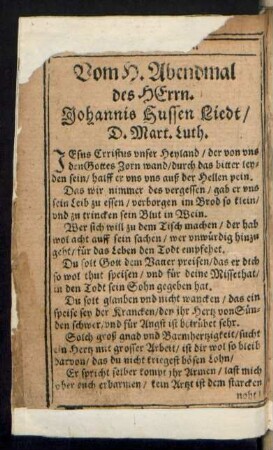 Vom H. Abendmal
des HErrn.
Johannis Hussen Liedt /
D. Mart. Luth.
JEsus Crristus vnser Heyland / der von vns
den Gottes Zorn wand / durch das bitter ley-
den sein / halff er vns vns auß der Hellen pein.
Das wir nimmer des vergessen / gab er vns
sein Leib zu essen / verborgen im Brod so klein /
vnd zu trincken sein Blut in Wein.
Wer sich will zu dem Tisch machen / der hab
wol acht auff sein sachen / wer vnwürdig hinzu
geht / für das Leben den Todt empfehet.
Du solt Gott dem Vatter preisen / das er dich
so wol thut speisen / vnd für deine Missethat /
in den Todt sein Sohn gegeben hat.
Du solt glauben vnd nicht wancken / das ein
speise sey der Krancken / der jhr Hertz von Sün-
den schwer / vnd für Angst ist betrübet sehr.
Solch groß gnad vnd Barmhertzigkeit / sucht
ein Hertz mit grosser Arbeit / ist dir wol so bleib
darvon / das du nicht kriegest bösen Lohn /
Er spricht selber kompt jhr Armen / last mich
vber euch erbarmen / kein Artzt ist dem starcken
noht /